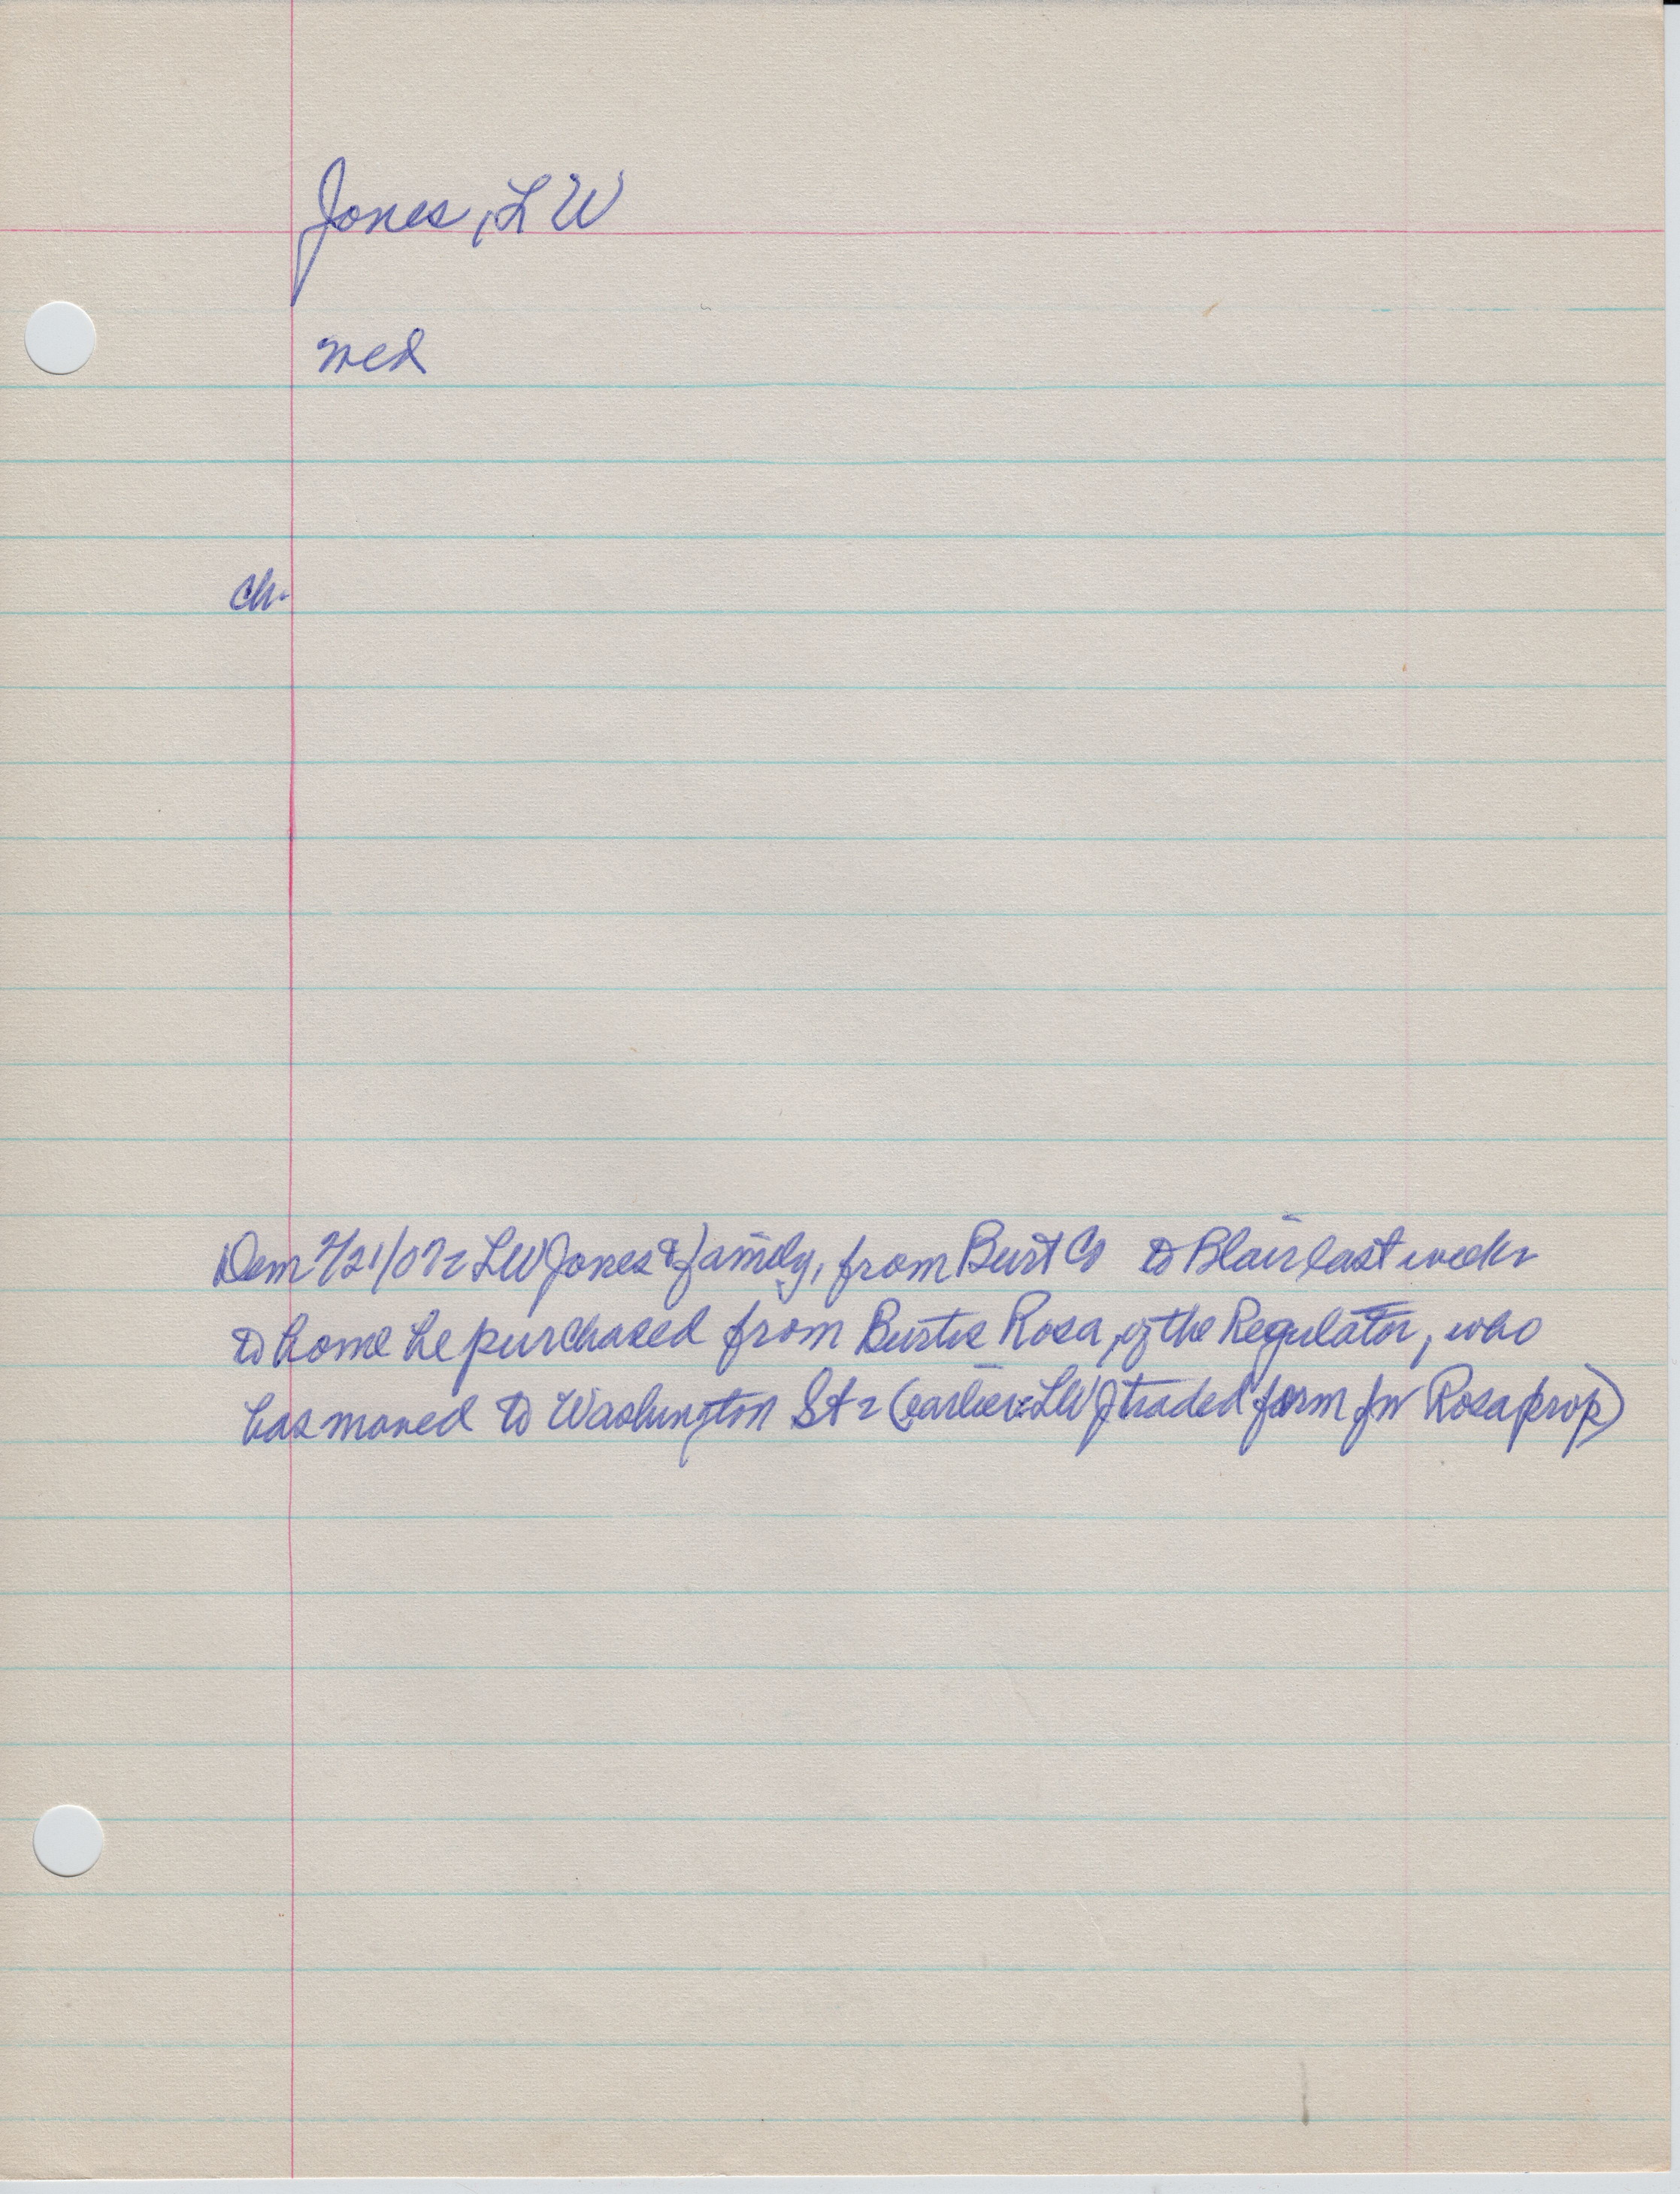 Jones, L W
med
ch.
Dem 2/21/07 - LW Jones & family, from Burt Co to Blair last week -
to home he purchased from Burtis Rosa, of the Regulator, who
has moved to Washington St - (earlier: LWJ traded farm for Rosa prop)